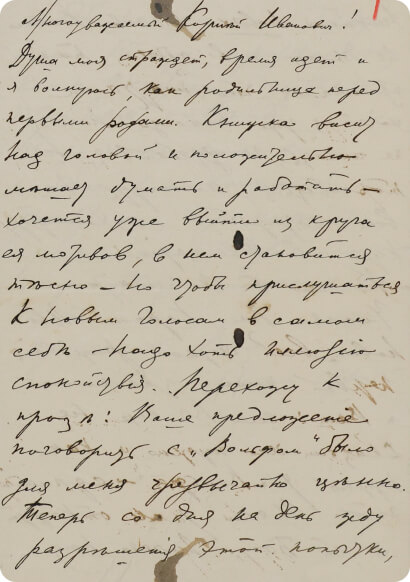 Многоуважаемый Корней Иванович!
Душа моя страждет, время идет и
я волнуюсь, как родильница перед
первыми родами. Книжка висит
над головой и положительно
мешает думать и работать —
хочется уже выйти из круга
ея мотивов, в нем становится
тѣсно — но чтобы прислушаться
к новым голосам в самом
себѣ — надо хоть иллюзiю
спокойствiя. Перехожу к
прозѣ: Ваше предложенiе
поговорить с „Вольфом" было
для меня чрезвычайно цѣнно.
Теперь со дня на день жду
разрѣшенiя этой попытки,